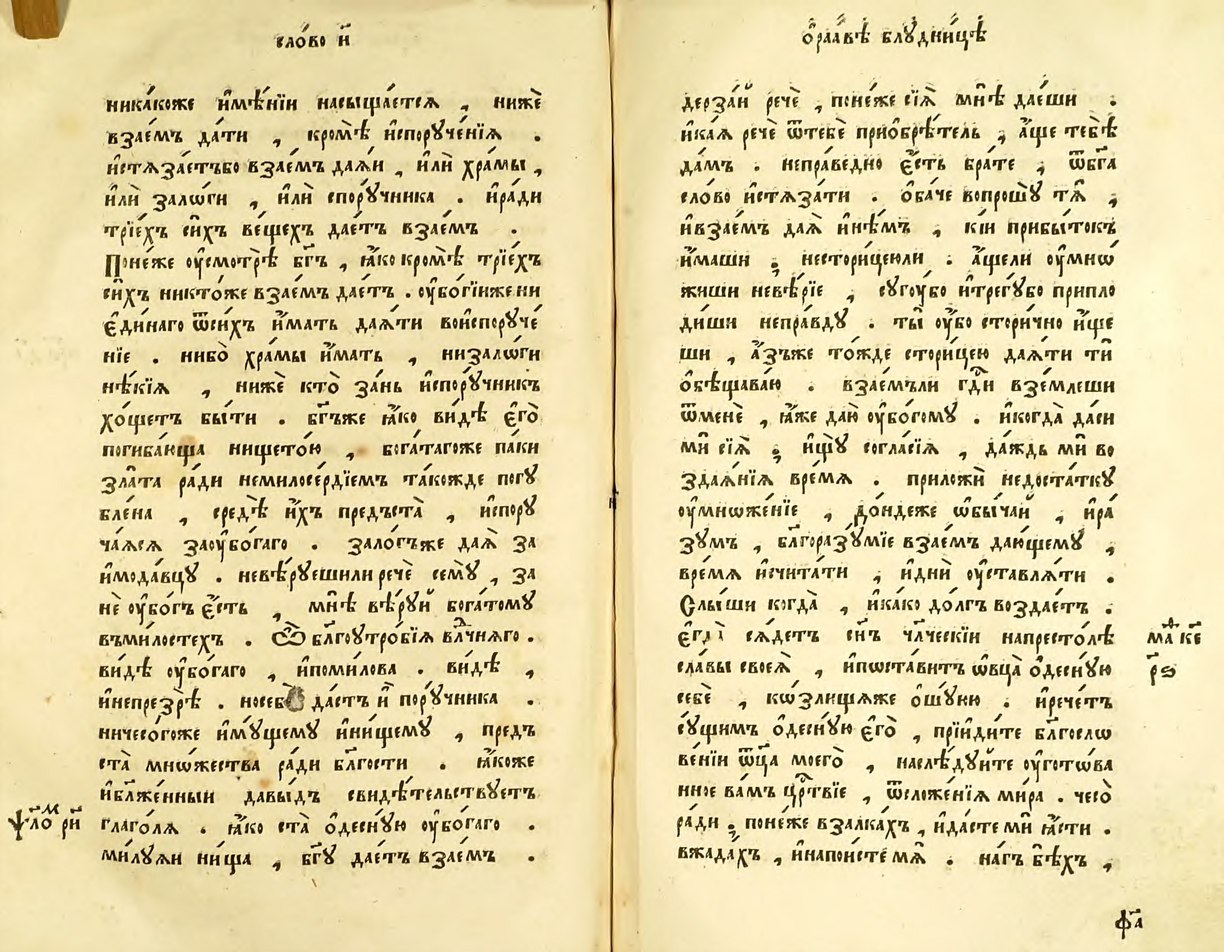 сло́во и҃
ника́коже и҆мѣ́нїи насыща́етсѧ , нижѐ
взае́мъ да́ти , кромѣ̀ и҆споруче́нїѧ .
и҆стѧза́етъбо взае́мъ даѧ́и , и҆лѝ хра́мы ,
и҆лѝ зало́ги , и҆лѝ спору́чника . и҆ра́ди
трїе́хъ си́хъ ве́щехъ дае́тъ взае́мъ .
Поне́же оу҆смотрѣ̀ бг҃ъ , ꙗ҆́ко кромѣ̀ трїе́хъ
си́хъ никто́же взае́мъ дае́тъ . оу҆бо́гїиже ни
є҆ди́наго ѿси́хъ и҆́мать даѧ́ти вои҆спору́че
нїе . нибо̀ хра́мы и҆́мать , низало́ги
нѣ́кїѧ , нижѐ кто̀ за́нь и҆спору́чникъ
хо́щетъ бы́ти . бг҃ъже ꙗ҆́ко ви́дѣ є҆го̀
погиба́юща нището́ю , бога́тагоже па́ки
зла́та ра́ди немилосе́рдїемъ та́кожде погꙋ
бле́на , средѣ̀ и҆́хъ предъста̀ , и҆спорꙋ
ча́ѧсѧ заоу҆бо́гаго . зало́гъже даѧ̀ за
и҆мода́вцꙋ . невѣ́рꙋешили речѐ семꙋ̀ , за
нѐ оу҆бо́гъ є҆́сть , мнѣ̀ вѣ́рꙋй бога́томꙋ
въми́лостехъ . Ѽ бл҃гоꙋтро́бїѧ влⷣчнѧго .
ви́дѣ оу҆бо́гаго , и҆поми́лова . ви́дѣ ,
и҆непрезрѣ̀ . носебѐ да́стъ и҆ порꙋ́чника .
ничесо́гоже и҆мꙋ́щемꙋ и҆ни́щемꙋ , предъ
ста̀ мно́жества ра́ди бл҃гости . ꙗ҆́коже
и҆бл҃же́нный давы́дъ свидѣ́тельствꙋетъ
глаго́лѧ . ꙗ҆́ко ста̀ ѻ҆деснꙋ́ю оу҆бо́гаго .
милꙋ́ѧи ни́ща , бг҃ꙋ дае́тъ взае́мъ .
ѱало́м ри҃
ѻ҆раа́вѣ блꙋдни́цѣ
дерза́й речѐ , поне́же сїѧ̀ мнѣ̀ дае́ши .
и҆ка́ѧ речѐ ѿтебѐ прїѡбрѣ́тель , а҆́ще тебѣ̀
да́мъ . непра́ведно є҆́сть бра́те , ѿбг҃а
сло́во и҆стѧза́ти . ѻ҆ба́че вопрошꙋ̀ тѧ̀ ,
и҆взае́мъ даѧ̀ и҆нѣ́мъ , кі́й прибы́токъ
и҆́маши ; несторице́юли . а҆́щели оу҆мно́
жиши невѣ́рїе , сꙋгоу́бо и҆трегꙋ́бо припло
ди́ши непра́вдꙋ . ты̀ оу҆́бо стори́чно и҆́ще
ши , а҆́зъже то́жде стори́цею даѧ́ти тѝ
ѻ҆бѣщава́ю . взае́мъли гдⷭ҇и взе́млеши
ѿменѐ , ꙗ҆́же даю̀ оу҆бо́гомꙋ . и҆когда̀ да́си
мѝ сїѧ̀ ; и҆щꙋ̀ согла́сїѧ , да́ждь мѝ во
здаѧ́нїѧ вре́мѧ . приложѝ недоста́ткꙋ
оу҆множе́нїе , до́ндеже ѡ҆бы́чай , и҆ра́
зꙋмъ , бл҃горазꙋ́мїе взае́мъ даю́щемꙋ ,
вре́мѧ и҆счита́ти , и҆дни̑ оу҆ставлѧ́ти .
Слы́ши когда̀ , и҆ка́ко до́лгъ воздае́тъ .
є҆гда̀ сѧ́детъ сн҃ъ чл҃ческїи напресто́лѣ
сла́вы своеѧ̀ , и҆поста́витъ ѻ҆́вца ѻ҆деснꙋ́ю
себѐ , ко́злищаже ѻ҆шꙋ́юю . и҆рече́тъ
сꙋ́щимъ ѻ҆деснꙋ́ю є҆го̀ , прїиди́те бл҃госло
ве́нїи ѻ҆ц҃а моего̀ , наслѣ́дꙋйте оу҆гото́ва
нное ва́мъ црⷭ҇твїе , ѿсложе́нїѧ ми́ра . чесо̀
ра́ди ; поне́же взалка́хъ , и҆да́стеми ꙗ҆́сти .
вжада́хъ , и҆напои́сте мѧ̀ . на́гъ бѣ́хъ ,
маⷴ҇ кє҃
рѕ҃
фа҃